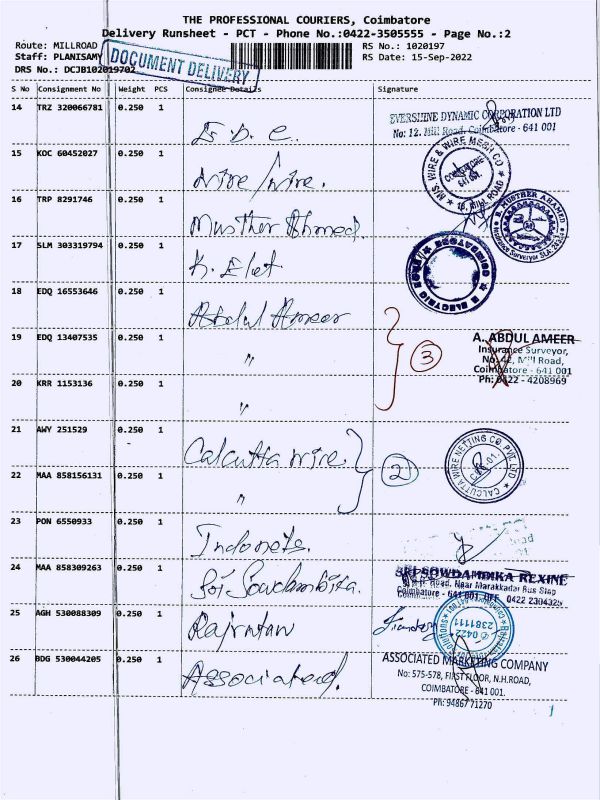 THE PROFESSIONAL COURIERS, Coimbatore
Delivery Runsheet - PCT - Phone No.:0422-3505555 - Page No.:2
Route: MILLROAD
RS No.: 1020197
Staff: PLANISAMY
RS Date: 15-Sep-2022
DRS No.: DCJB102019702
DOCUMENT DELIVERY
S No Consignment No Weight PCS Consignee Details Signature
14 TRZ 320066781 0.250 1
E. D. C.
EVERSHINE DYNAMIC CORPORATION LTD
No: 12. Mill Road. Coimbatore - 641 001
15 KOC 60452027 0.250 1
wire/wire.
M/S WIRE & WIRE MESH CO
COIMBATORE
641 001.
MILL ROAD
16 TRP 8291746 0.250 1
Musther Ahmed
B. MUSTHER AHAMED
Insurance Surveyor
17 SLM 303319794 0.250 1
K. Elet
ELECTRIC
COIMBATORE
18 EDQ 16553646 0.250 1
Abdul Ameer
19 EDQ 13407535 0.250 1
"
3
A. ABDUL AMEER
Insurance Surveyor,
Mill Road,
Coimbatore - 641 001
Ph: 0422 - 4208969
20 KRR 1153136 0.250 1
"
21 AWY 251529 0.250 1
Calcutta wire.
CALCUTTA WIRE NETTING CO. PVT. LTD
22 MAA 858156131 0.250 1
"
2
23 PON 6550933 0.250 1
Indonets.
Road
24 MAA 858309263 0.250 1
Sri Sowdambika.
SRI SOWDAMBIKA REXINE
Road, Near Marakkadai Bus Stop
Coimbatore - 641 001. OFF 0422 2304325
25 AGH 530088309 0.250 1
Rajratan
0422
2381111
26 BDG 530044205 0.250 1
Associated.
ASSOCIATED MARKETING COMPANY
No: 575-578, FIRST FLOOR, N.H.ROAD,
COIMBATORE - 641 001.
Ph: 94867 71270